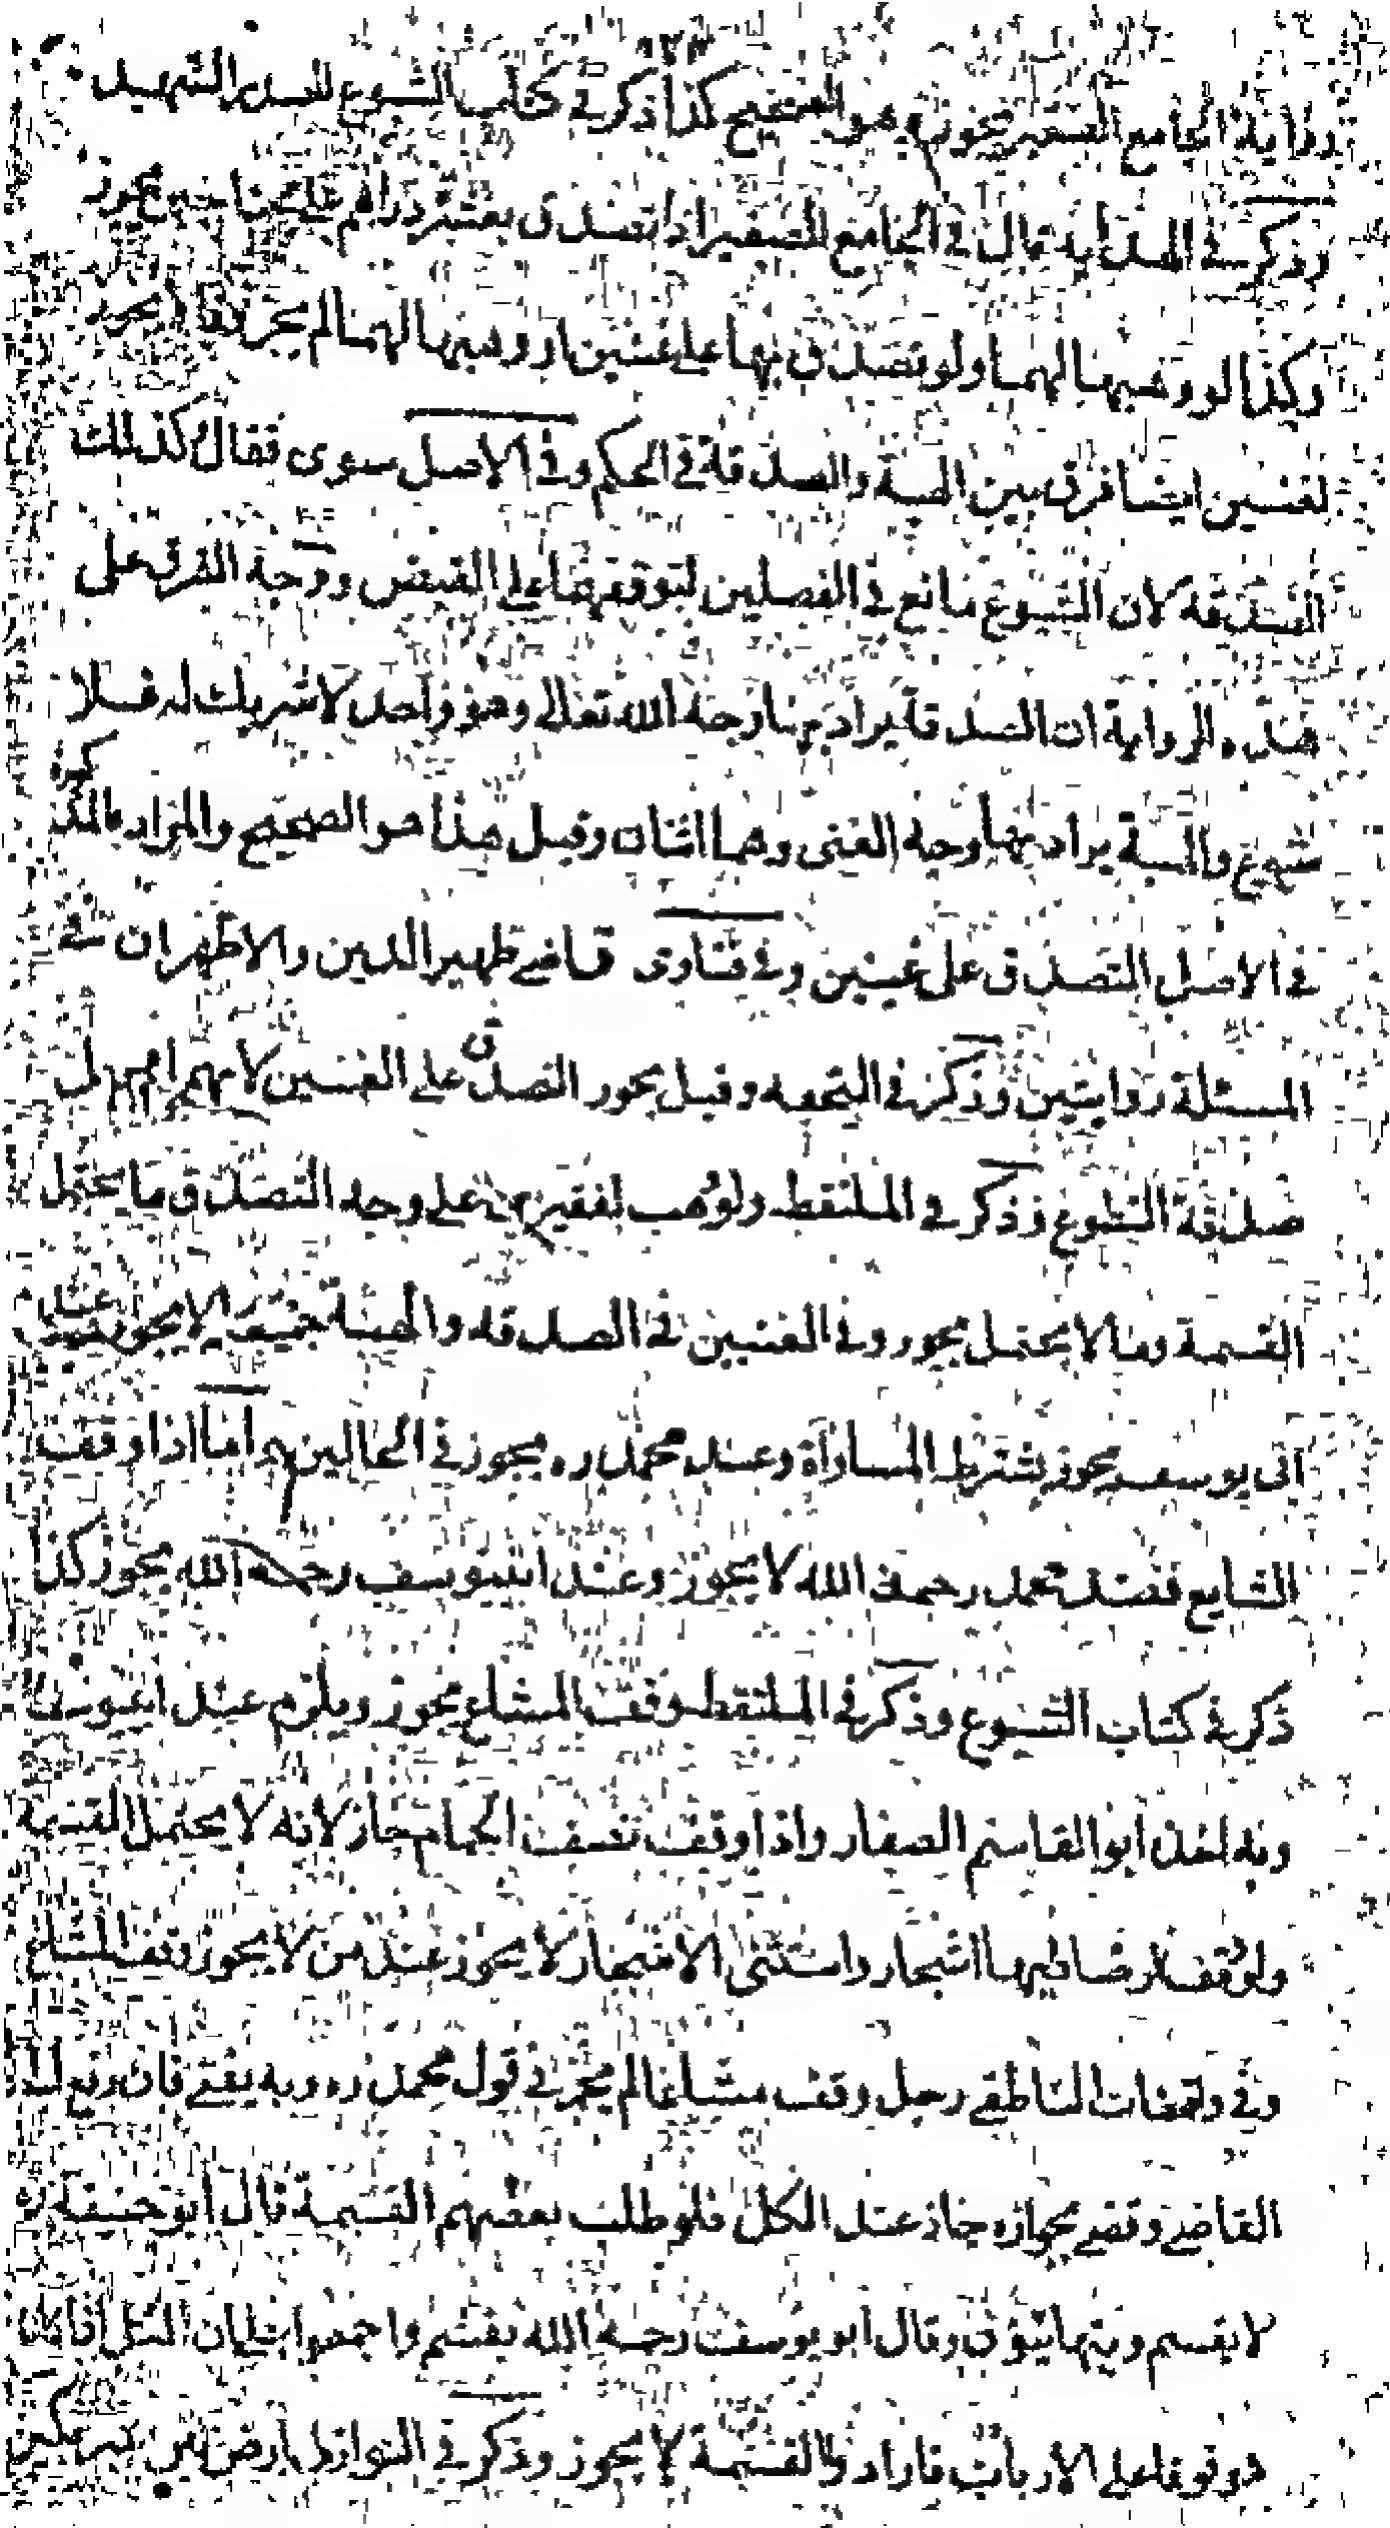 رواية الجامع الصغير يجوز وهو الصحيح كذا ذكر في كتاب الشيوع للصدر الشهيد
وذكر في الهداية قال في الجامع الصغير اذا تصدق بعشرة دراهم على محتاجين يجوز
وكذا لو وهبها لهما ولو تصدق بها على غنيين او وهبها لهما لم يجز وقالا يجوز
لغنيين ايضا فرق بين الهبة والصدقة في الحكم وفي الاصل سوى فقال وكذلك
الصدقة لان الشيوع مانع في الفصلين لتوقفهما على القبض ووجه الفرق على
هذه الرواية ان الصدقة يراد بها وجه الله تعالى وهو واحد لا شريك له فلا
شيوع والهبة يراد بها وجه الغنى وهما اثنان وقيل هذا هو الصحيح والمراد بالمذكور
في الاصل التصدق على غنيين وفي فتاوى قاضي ظهير الدين والاظهر ان في
المسئلة روايتين وذكر في التحفة وقيل يجوز التصدق على الغنيين لانهم
صدقة التطوع وذكر في الملتقط ولو وهب لفقيرين على وجه التصدق ما يحتمل
القسمة وما لا يحتمل يجوز وفي الغنيين في الصدقة والهبة لا يجوز وعند
ابى يوسف يجوز بشرط المساواة وعند محمد ره يجوز في الحالين اما اذا وقف
الشايع فعند محمد رحمه الله لا يجوز وعند ابيوسف رحمه الله يجوز كذا
ذكر في كتاب الشيوع وذكر في الملتقط وقف المشاع يجوز ويلزم عند ابيوسف
وبه اخذ ابو القاسم الصفار واذا وقف نصف الحمام جاز لانه لا يحتمل القسمة
ولو وقف ارضا فيها اشجار واستثنى الاشجار لا يجوز عند من لا يجوز وقف المشاع
وفي واقعات الناطفي رجل وقف مشاعا لم يجز في قول محمد ره وبه يفتى فان رفع الى
القاضي وقضى بجوازه جاز عند الكل فلو طلب بعضهم القسمة قال ابو حنيفة ره
لا يقسم ويتهايئون وقال ابو يوسف رحمه الله يقسم واجمعوا ان الكل اذا كان
موقوفا على الارباب فارادوا القسمة لا يجوز وذكر في النوازل ارض بين شريكين